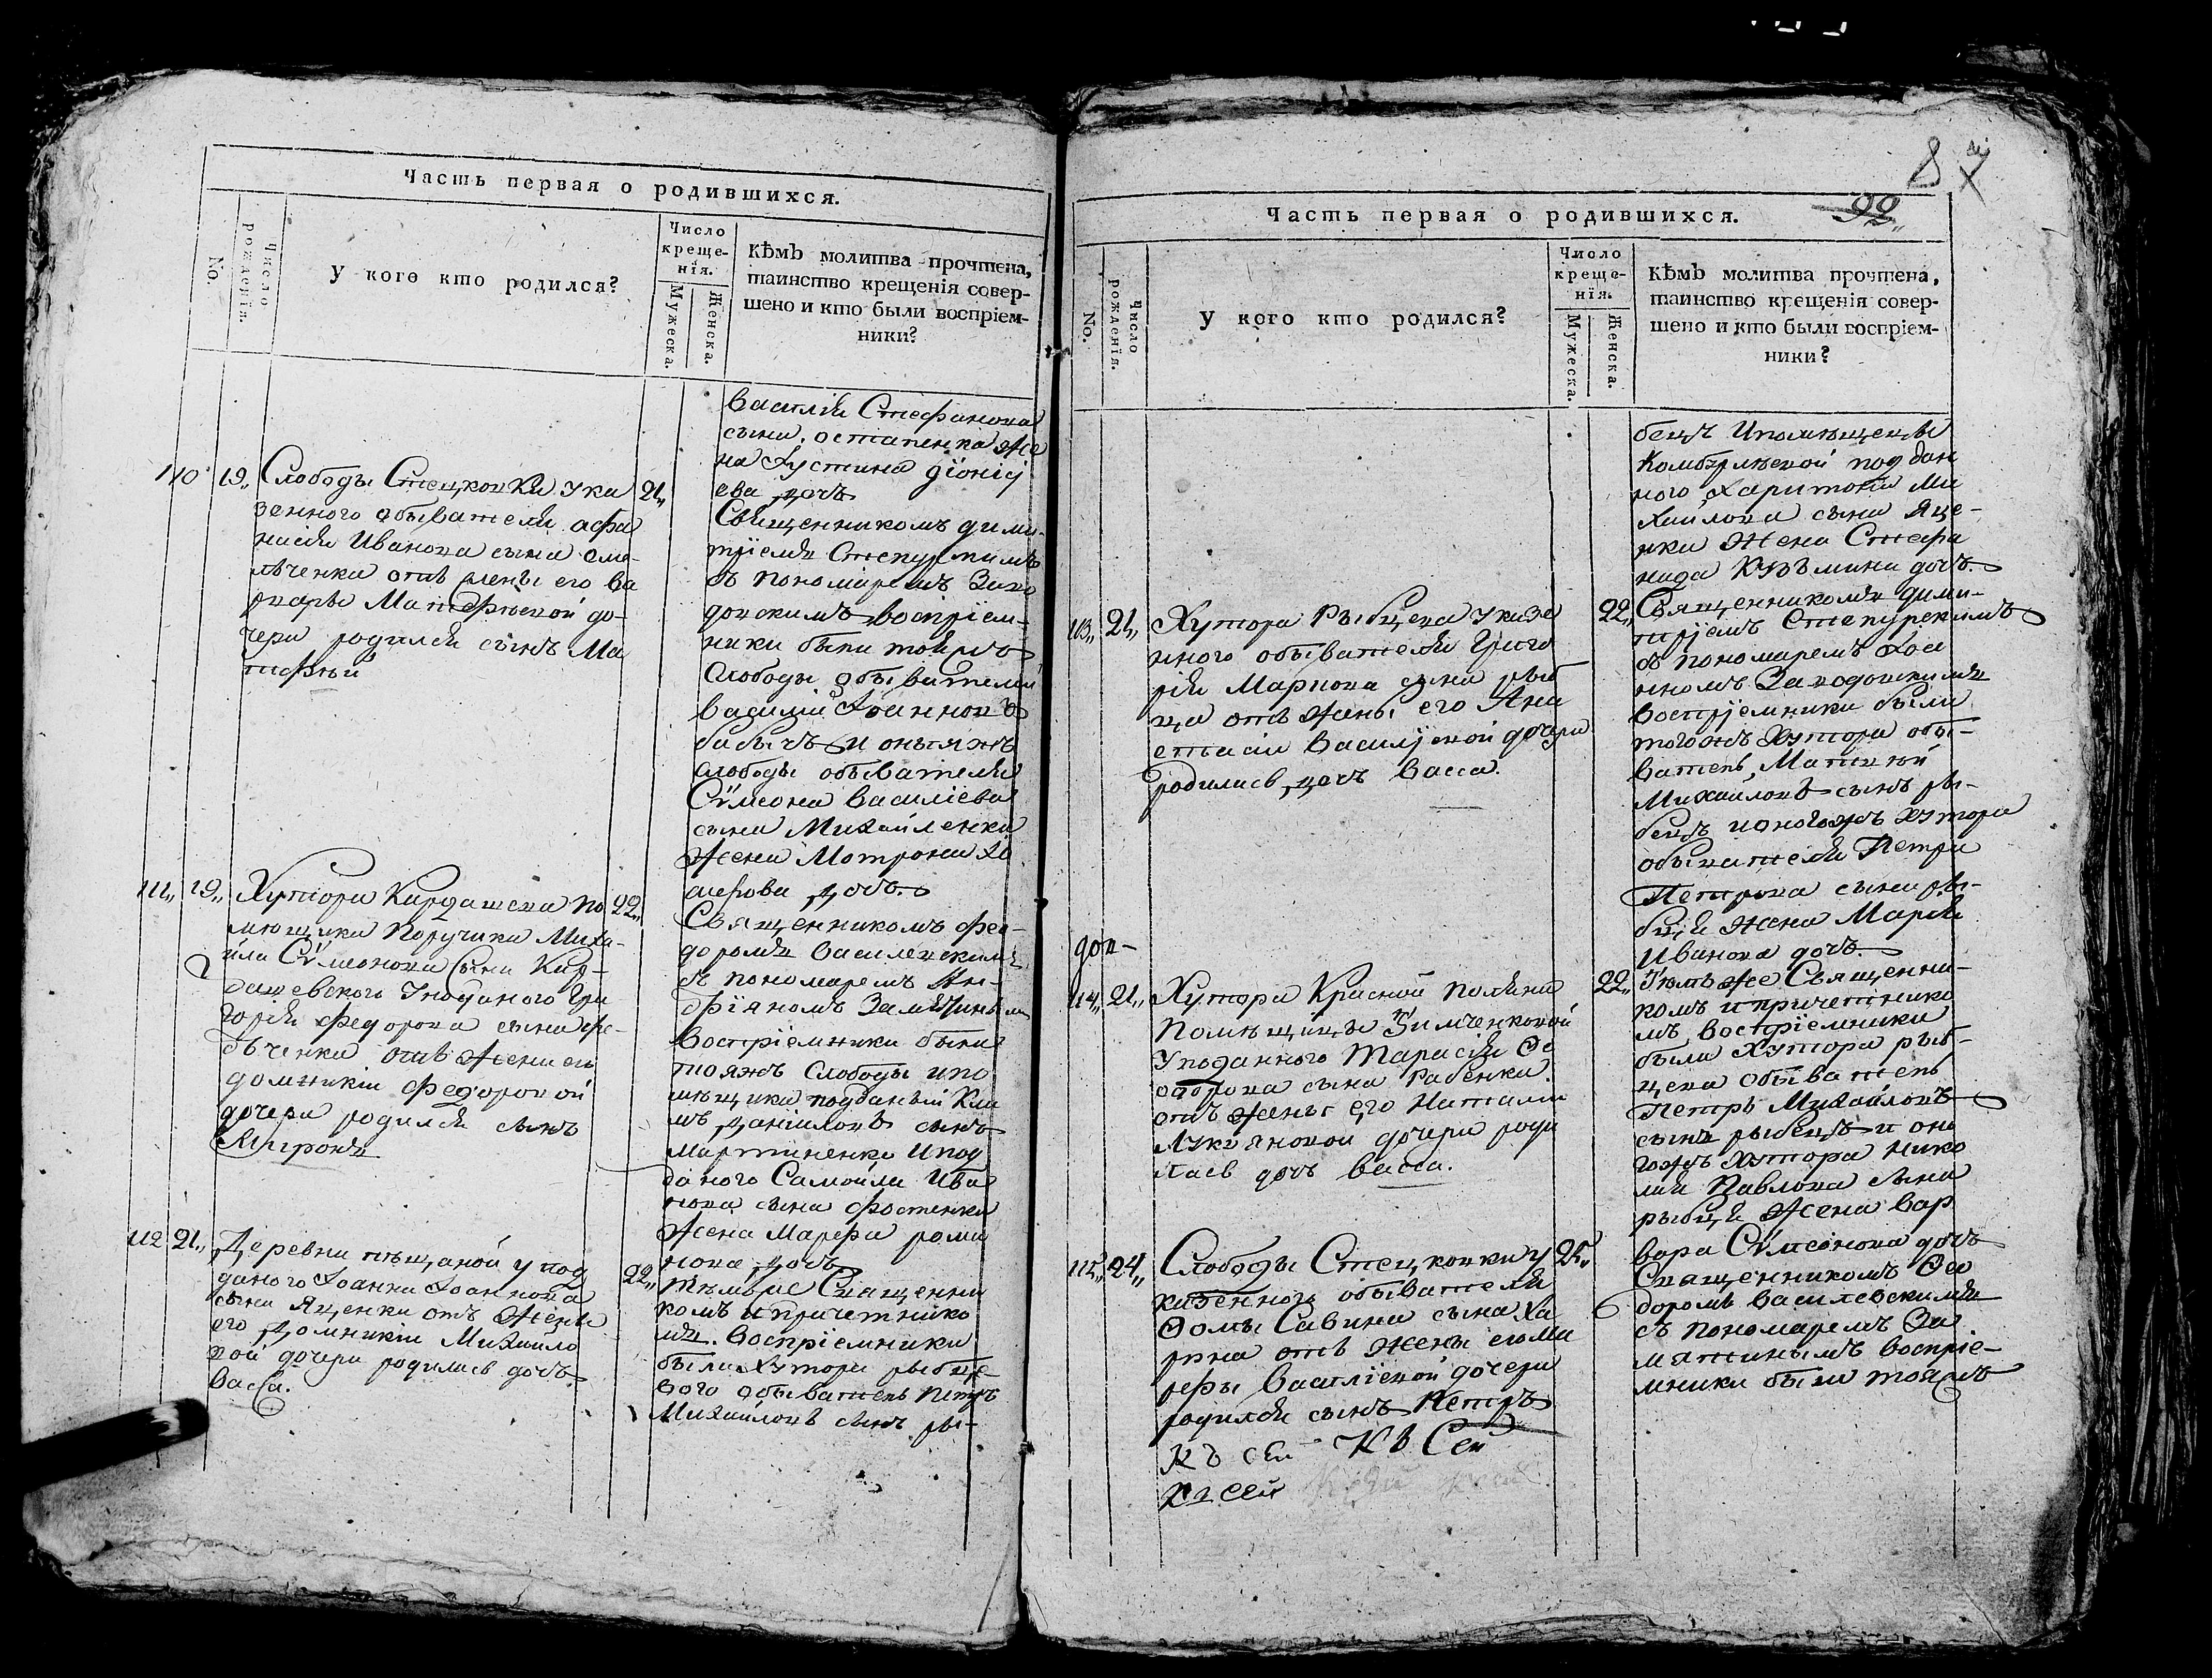 Часть первая о родившихся.
No.
Число рожденія.
У кого кто родился?
Число
креще-
нія.
Мужеска.
Женска.
Кѣмъ молитва прочтена,
таинство крещенія совер-
шено и кто были воспріем-
ники?
Василія Стефанова
сына Остапенка же
на Іустина діоніс
ева дочь
110 19 Слободы Стецковки у ка 21
зенного обывателя афа
насія Иванова сына оме-
льченка отъ жены его ва
рвары Матфѣевой до-
чери родился сынъ Ма
тифѣй
Священникомъ дими-
тріемъ Степурскимъ
съ пономаремъ Заво
довскимъ воспріем-
ники были тойжъ
слободы обыватели
василій Іоанновъ
бабычъ и оныяжъ
слободы обывателя
Сѵмеона василіева
сына Михайленка
жена Мотрона
дочь
111 19 Хутора Кардашева по 22
мѣщика Поручика Миха-
ила Сѵмеонова сына Кар-
дашевского у поданого Гри
горія федорова сына
отъ жены его
домникіи федоровой
дочери родился сынъ
Священникомъ фео-
доромъ василевскимъ
съ пономаремъ Ан-
дріяномъ Замятинымъ
Воспріемники были
тояжъ слободы и по
мѣщика подданый Кли
мъ даніиловъ сынъ
мартиненко и под
даного Самойла Ива
нова сына фостенка
жена Марфа рома
нова дочь
112 21 Деревни пѣщаной у под 22
даного Іоанна Іоаннова
сына Яценка отъ жены
его Домникіи Михайло
вой дочери родилась дочь
васса.
Тѣмже Священни
комъ и причетнико
мъ. Воспріемники
были Хутора рыбце-
вого обыватель Петръ
Михайловъ сынъ ры-
8
99
Часть первая о родившихся.
No.
Число рожденія.
У кого кто родился?
Число
креще-
нія.
Мужеска.
Женска.
Кѣмъ молитва прочтена,
таинство крещенія совер-
шено и кто были воспріем-
ники?
бецъ и помѣщицы
Комбурлѣевой поддан
ного Харитона Ми
хайлова сына Яце-
нка жена Стефа
нида Кузьмина дочь.
113 21 Хутора Рыбцева у казе 22
нного обывателя Григо
рія Маркова сына рыб
ца отъ жены его Ана
стасіи василіевой дочери
родилась дочь васса.
Священникомъ дими-
тріемъ Степурскимъ
съ пономаремъ Іоа
нномъ Заводовскимъ
воспріемники были
тогожъ хутора обы-
ватель Матвѣй
Михайловъ сынъ ры-
бецъ и оногожъ хутора
обывателя Петра
Петрова сына ры-
бця жена Марія
Иванова дочь.
114 21 Хутора Красной поляни 22
помѣщицы Зимченковой
у поданного Тарасія Ѳе
одорова сына Рабенка
отъ жены его Наталіи
Лукіяновой дочери роди
лась дочь васса.
Тѣмъ же Священни-
комъ и причетнико
мъ воспріемники
были хутора рыб-
цева обыватель
Петръ Михайловъ
сынъ рыбецъ и оно
гожъ хутора Нико
лая Павлова сына
рыбця жена Вар
вара Сѵмеонова дочь
115 24 Слободы Стецковки у 25
казенного обывателя
Ѳомы Савина сына
отъ жены его Ма
рфы василіевой дочери
родился сынъ Петръ
Священникомъ Ѳео
доромъ василевскимъ
съ пономаремъ За
мятинымъ воспріе-
мники были тояжъ
Къ сей Къ Сей
Къ сей